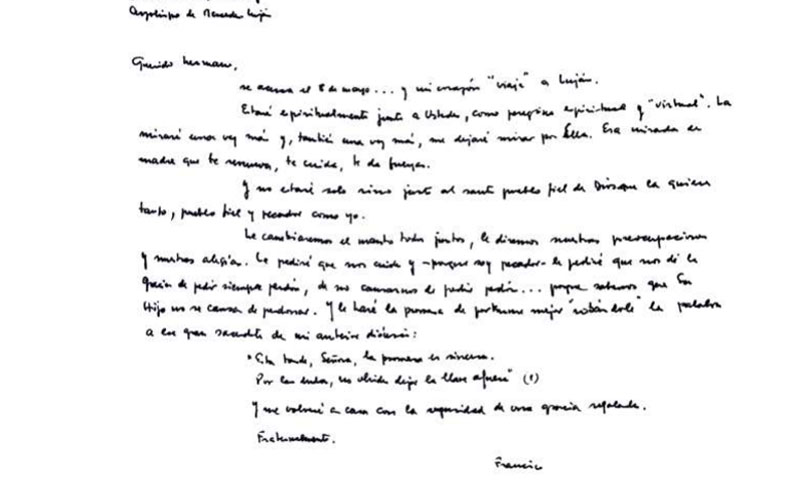 Arzobispo de Mercedes-Luján
Querido hermano,
se acerca el 8 de mayo... y mi corazón "viaja" a Luján.
Estaré espiritualmente junto a Ustedes, como peregrino espiritual y "virtual". La
miraré una vez más y, también una vez más, me dejaré mirar por Ella. Esa mirada de
madre que te renueva, te cuida, te da fuerzas.
Y no estaré solo sino junto al santo pueblo fiel de Dios que la quiere
tanto, pueblo fiel y pecador como yo.
Le cambiaremos el manto todos juntos, le diremos nuestras preocupaciones
y nuestras alegrías. Le pediré que nos cuide y -porque soy pecador- le pediré que nos dé la
gracia de pedir siempre perdón, de no cansarnos de pedir perdón... porque sabemos que Su
Hijo no se cansa de perdonar. Y le haré la promesa de portarme mejor "robándole" la palabra
a un gran sacerdote de mi anterior diócesis:
"Esta tarde, Señora, la promesa es sincera.
Por las dudas, no olvide dejar la llave afuera" (1)
Y me volveré a casa con la seguridad de una gracia regalada.
Fraternalmente.
Francisco